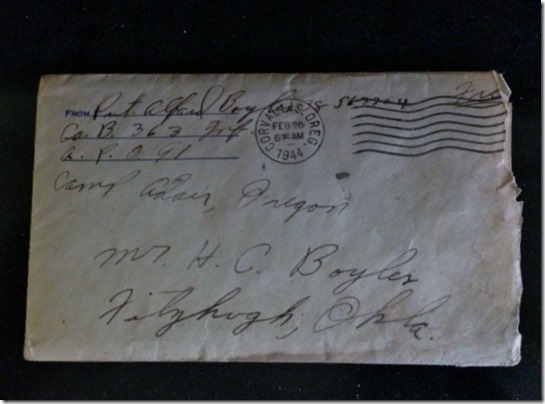 FROM Pvt. Alfred Boyles Free
Co. B 363 Inf
A. P. O. 91
Camp Adair, Oregon
CORVALLIS, OREG.
FEB 26
AM
1944
Mr. H. C. Boyles
Fitzhugh, Okla.